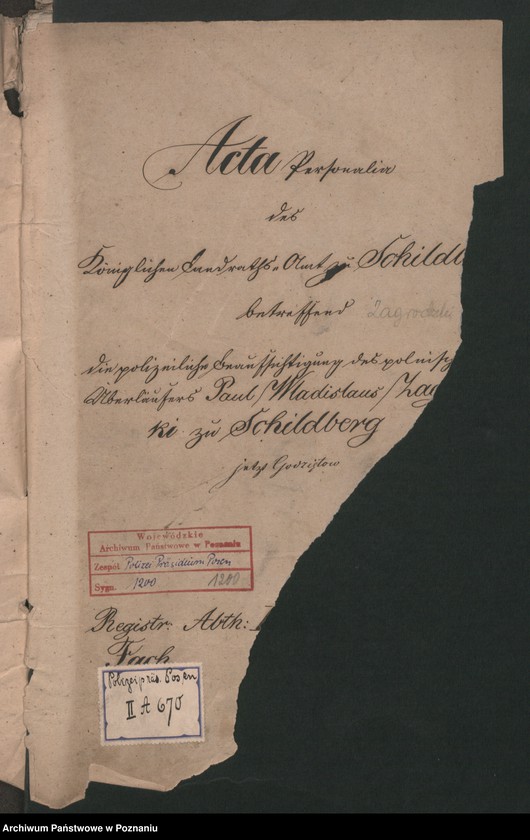 Acta Personalia
des
Königlichen Landraths-Amt zu Schildb
betreffend Zagrodzki
die polizeiliche Beaufsichtigung des polnisch
Überläufers Paul /Wladislaus/ Zag
ki zu Schildberg
jetzt
Wojewódzkie
Archiwum Państwowe w Poznaniu
Zespół Polizei Präsidium Posen
Sygn. 1200 1200
Registr: Abth:
Fach
Polizeipräs. Posen
II A 670
Archiwum Państwowe w Poznaniu